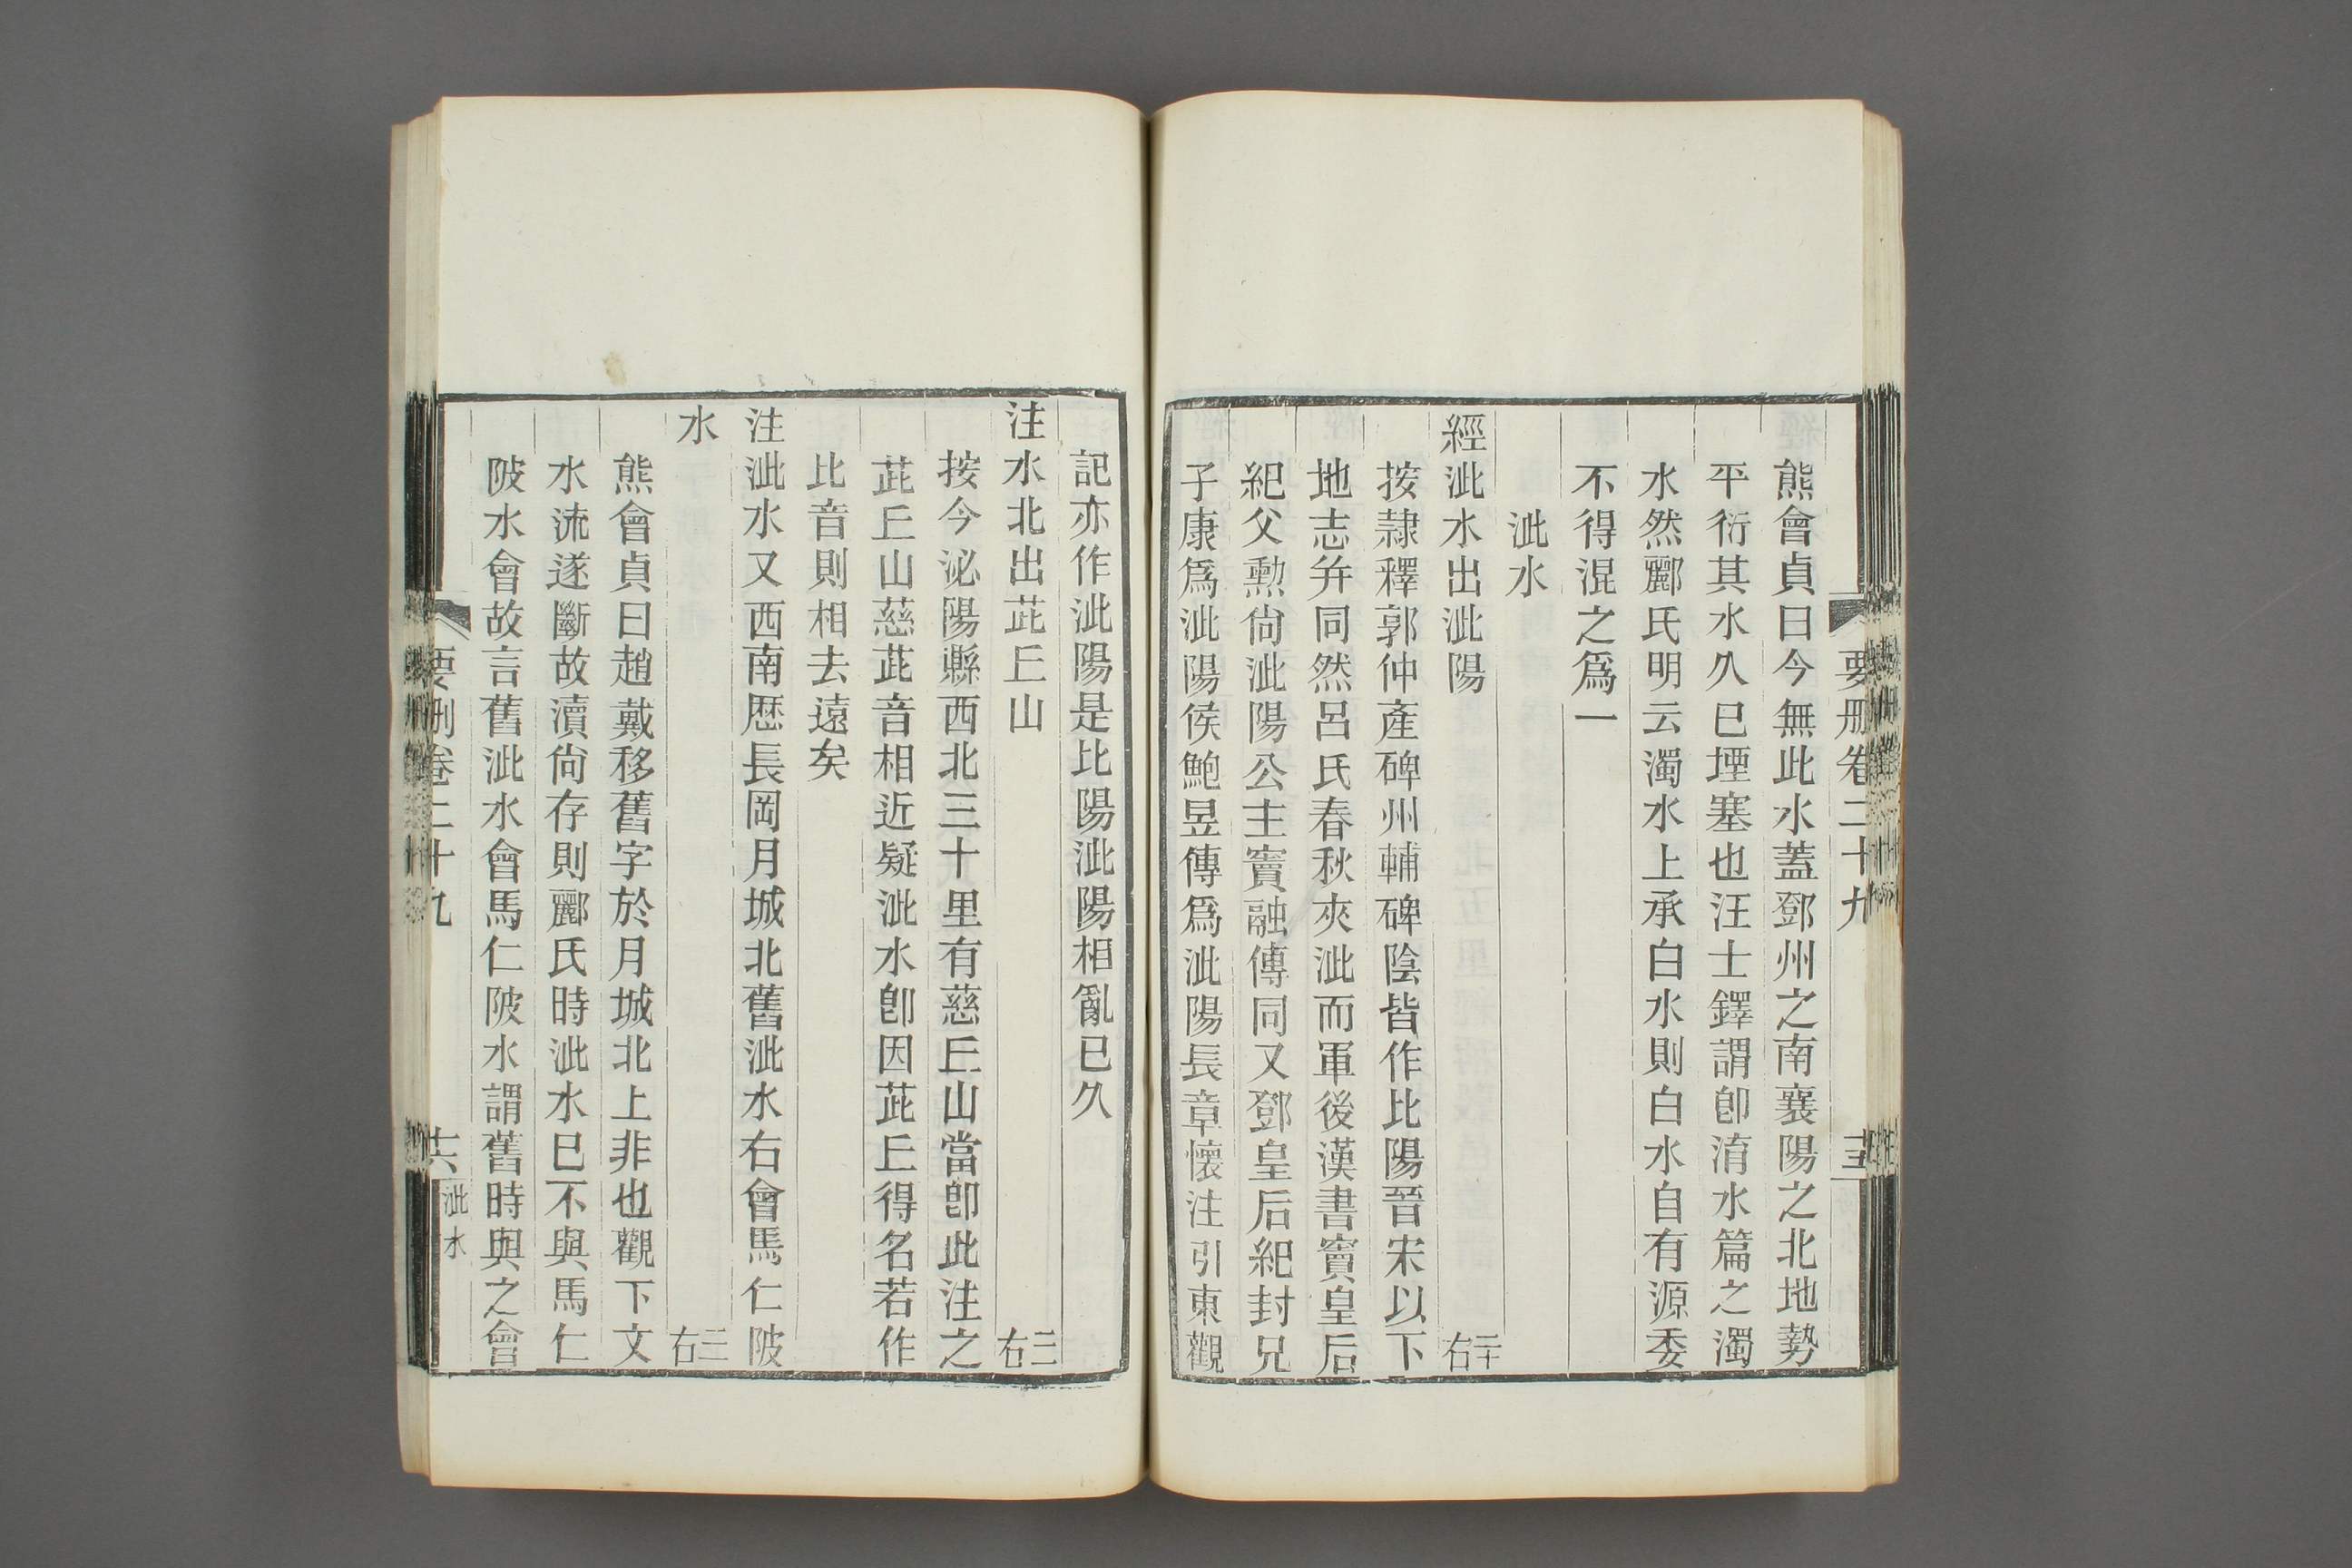 要刪卷二十九
熊會貞曰今無此水蓋鄧州之南襄陽之北地勢
平衍其水久已堙塞也汪士鐸謂卽淯水篇之濁
水然酈氏明云濁水上承白水則白水自有源委
不得混之爲一
沘水
經沘水出沘陽 二十右
按隷釋郭仲產碑州輔碑陰皆作比陽晉宋以下
地志幷同然呂氏春秋夾沘而軍後漢書竇皇后
紀父勳尙沘陽公主竇融傳同又鄧皇后紀封兄
子康爲沘陽侯鮑昱傳爲沘陽長章懷注引東觀
記亦作沘陽是比陽沘陽相亂已久
注水北出茈丘山 二右
按今泌陽縣西北三十里有慈丘山當卽此注之
茈丘山慈茈音相近疑沘水卽因茈丘得名若作
比音則相去遠矣
注沘水又西南歷長岡月城北舊沘水右會馬仁陂
水 三右
熊會貞曰趙戴移舊字於月城北上非也觀下文
水流遂斷故瀆尙存則酈氏時沘水已不與馬仁
陂水會故言舊沘水會馬仁陂水謂舊時與之會
要刪卷二十九
沘水